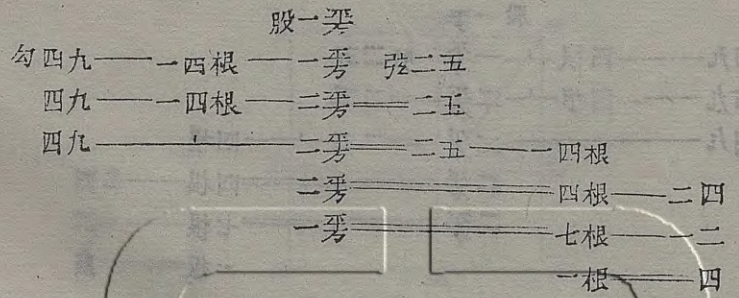 股一平方
勾四九——一四根——一平方 弦二五
四九——一四根——二平方══二五
四九————二平方══二五——一四根
二平方════四根——二四
一平方════七根——一二
一根══四